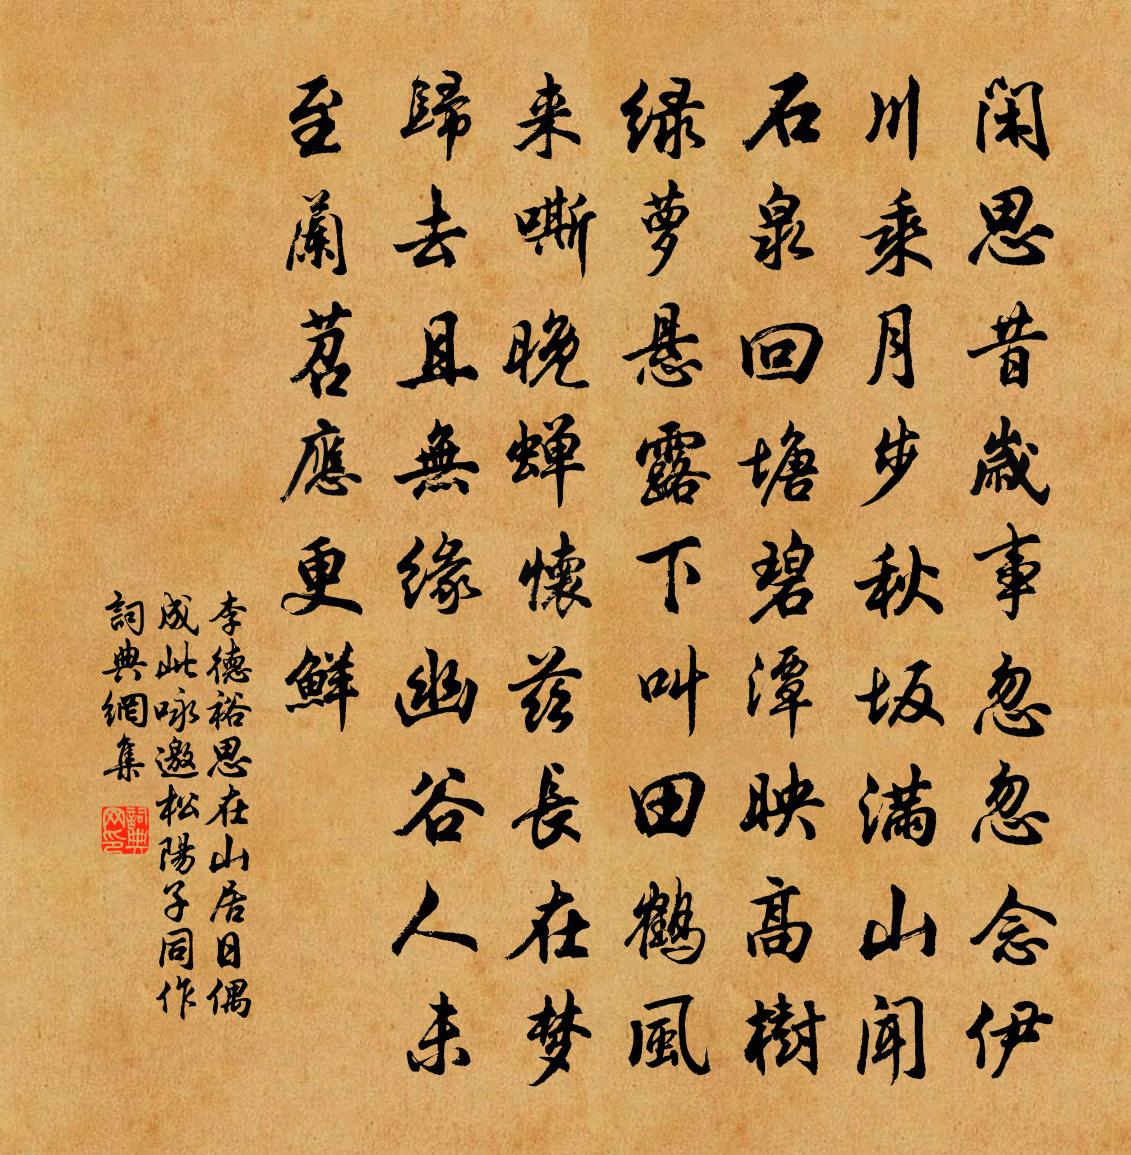 閑思昔歲事忽忽念伊
川乘月步秋坂满山闻
石泉回塘碧潭映高樹
绿萝悬露下叫田鶴風
来嘶晚蝉懷兹長在梦
歸去且無缘幽谷人未
至蘭苕應更鮮
李德裕思在山居日偶
成此咏邀松陽子同作
詞典網集
詞典网印